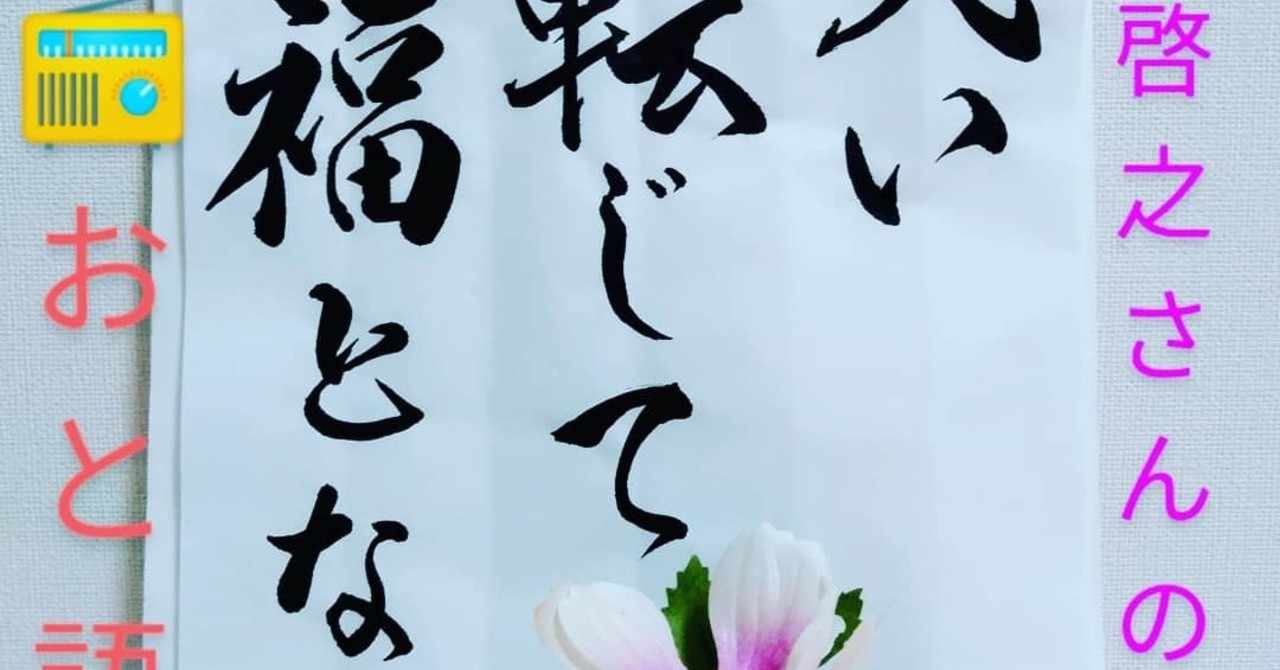 啓之さんの
い
転じて
福とな
おと